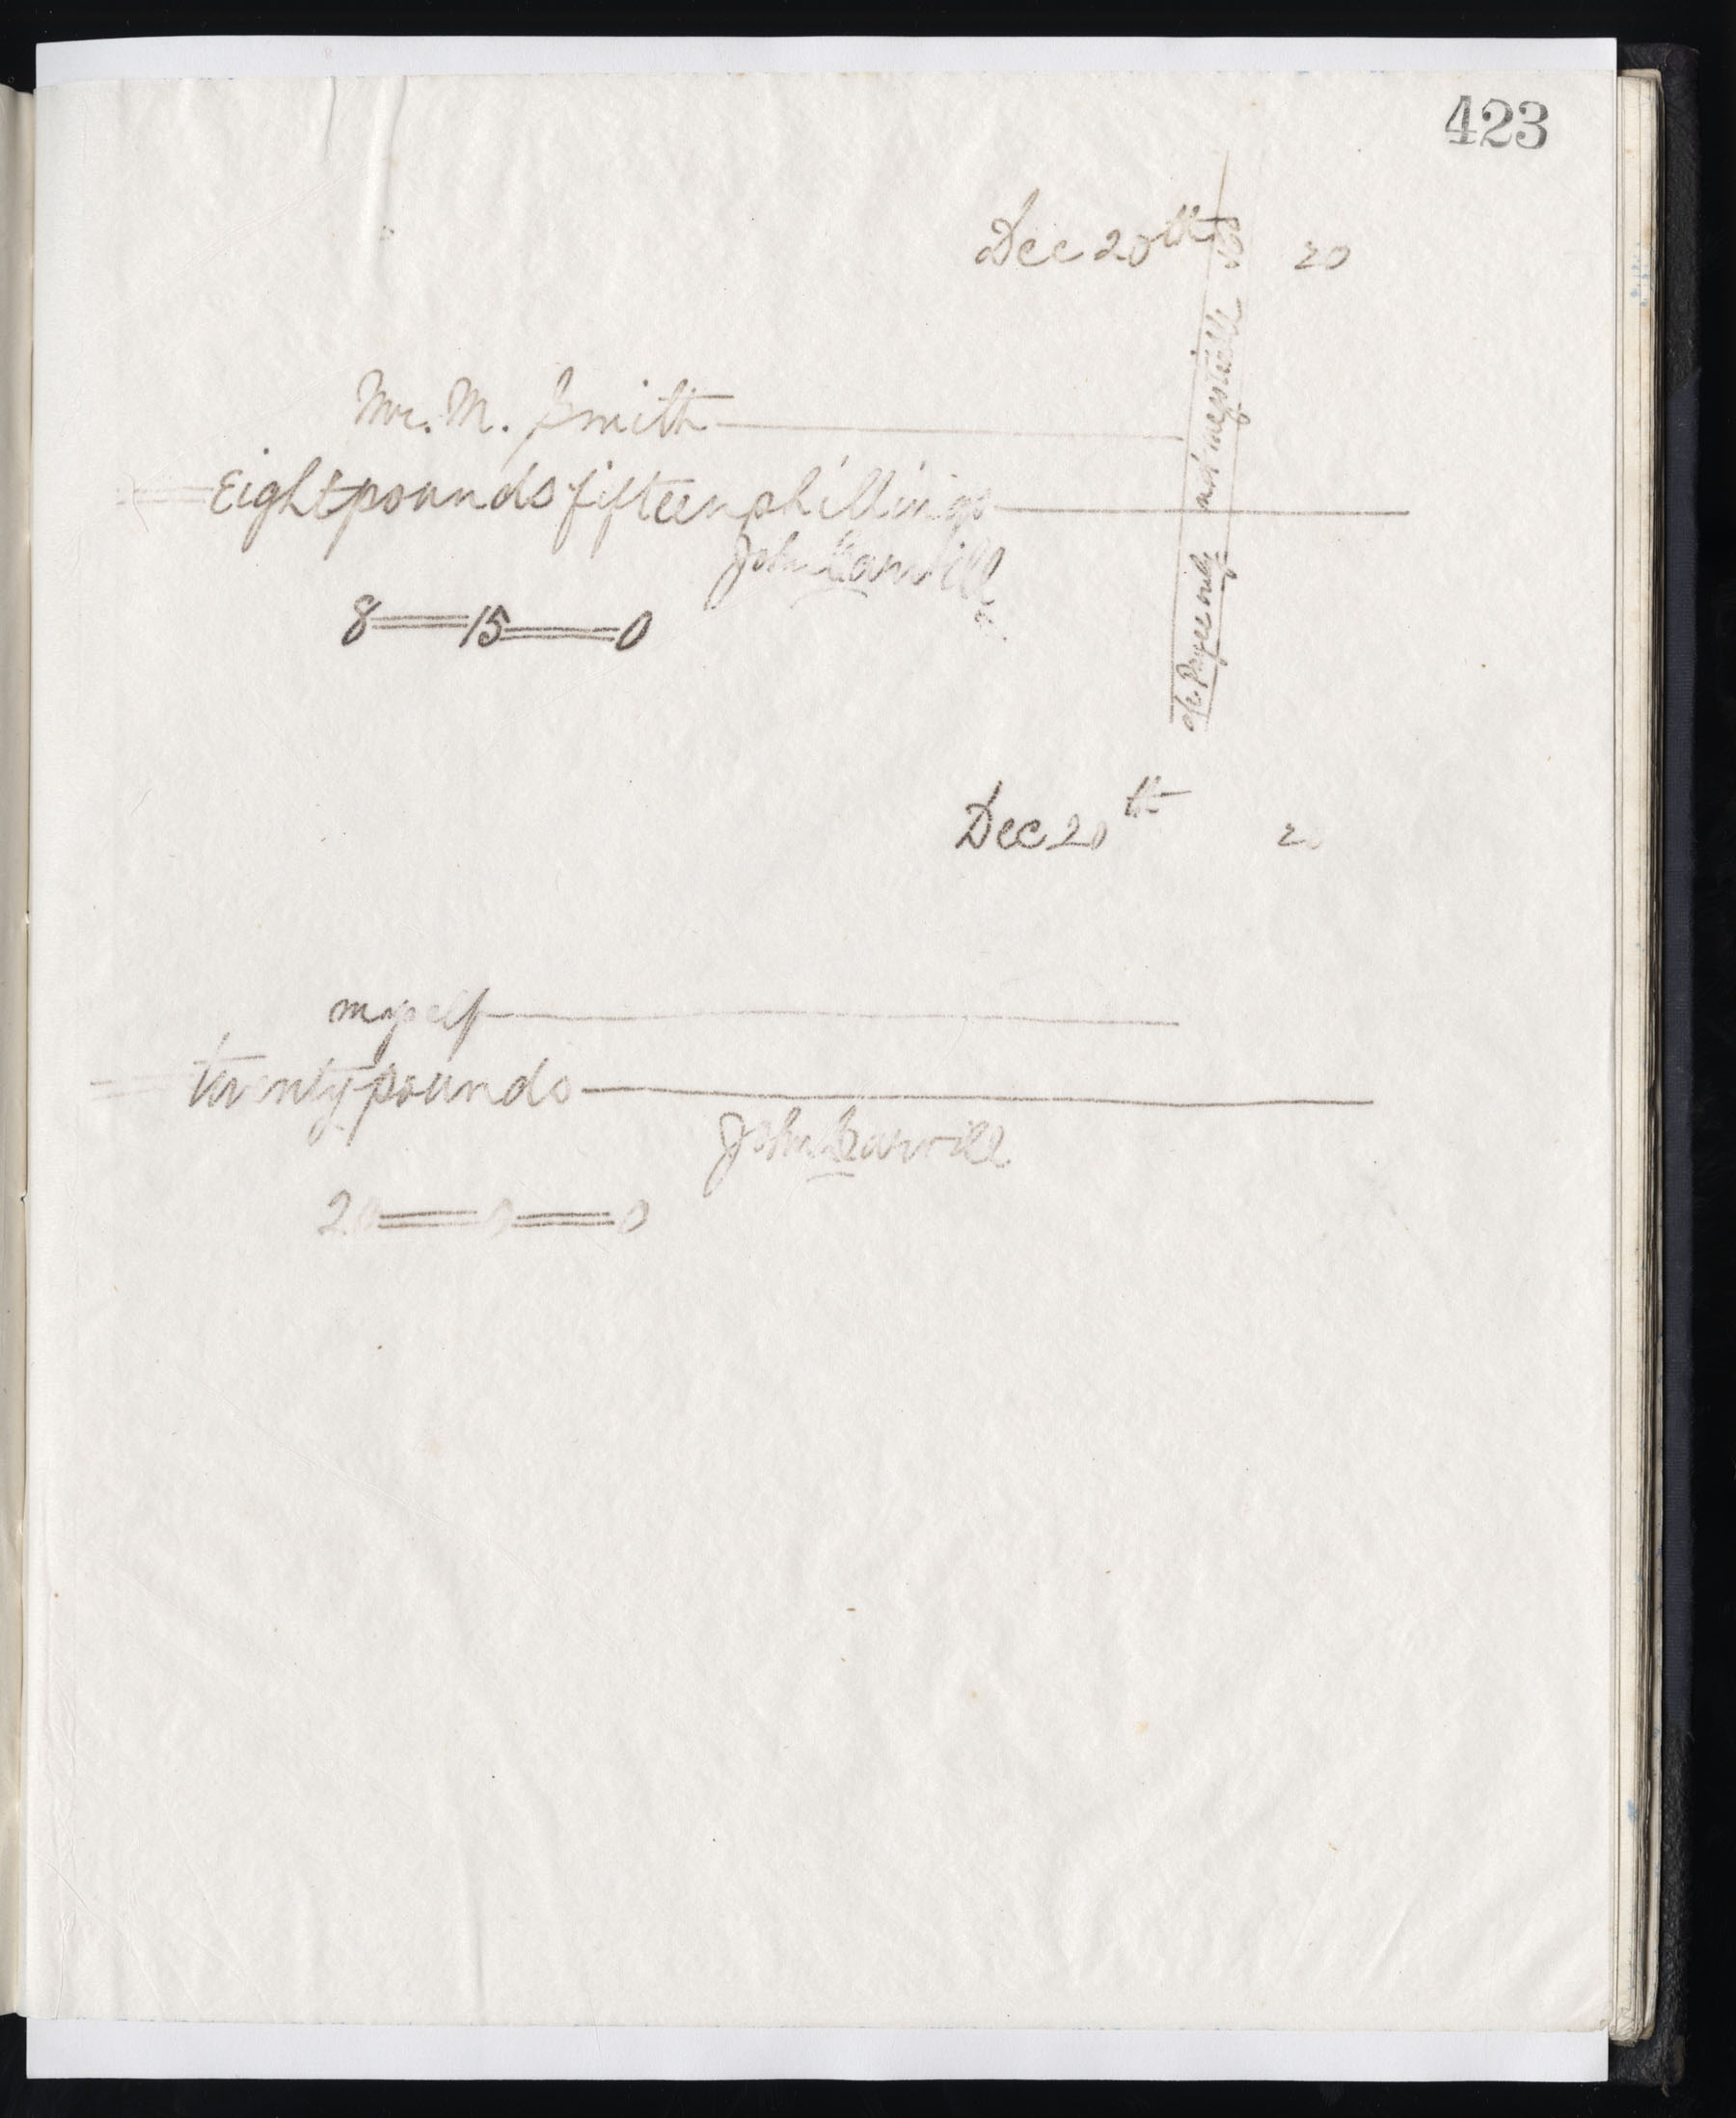 423
Dec 20th 20
Mr. M. Smith
Eight pounds fifteen shillings
John
8 15 0
a/c Payee only
not negotiable
& Co
Dec 20th 20
myself
twenty pounds
John
20 0 0